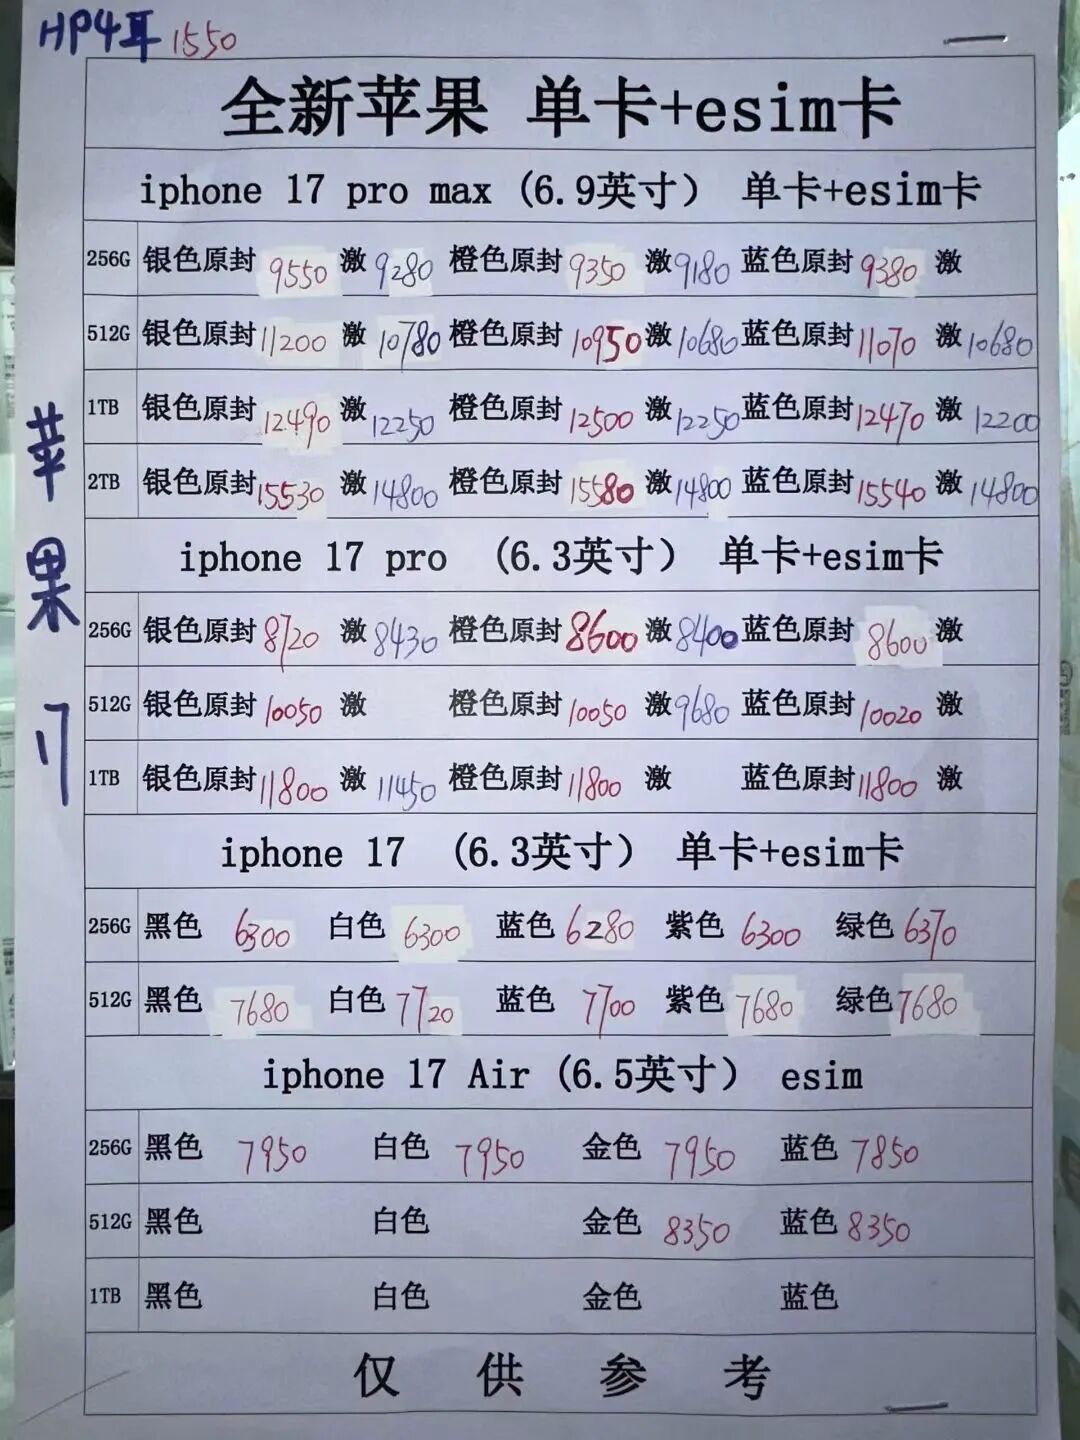 HP4耳 1550
全新苹果 单卡+esim卡
iphone 17 pro max (6.9英寸) 单卡+esim卡
256G 银色原封 9550 激 9280 橙色原封 9350 激 9180 蓝色原封 9380 激
512G 银色原封 11200 激 10780 橙色原封 10950 激 10680 蓝色原封 11070 激 10680
1TB 银色原封 12490 激 12250 橙色原封 12500 激 12250 蓝色原封 12470 激 12200
2TB 银色原封 15530 激 14800 橙色原封 15580 激 14800 蓝色原封 15540 激 14800
iphone 17 pro (6.3英寸) 单卡+esim卡
256G 银色原封 8720 激 8430 橙色原封 8600 激 8400 蓝色原封 8600 激
512G 银色原封 10050 激 橙色原封 10050 激 9680 蓝色原封 10020 激
1TB 银色原封 11800 激 11450 橙色原封 11800 激 蓝色原封 11800 激
iphone 17 (6.3英寸) 单卡+esim卡
256G 黑色 6300 白色 6300 蓝色 6280 紫色 6300 绿色 6370
512G 黑色 7680 白色 7720 蓝色 7700 紫色 7680 绿色 7680
iphone 17 Air (6.5英寸) esim
256G 黑色 7950 白色 7950 金色 7950 蓝色 7850
512G 黑色 白色 金色 8350 蓝色 8350
1TB 黑色 白色 金色 蓝色
仅供参考
苹果17